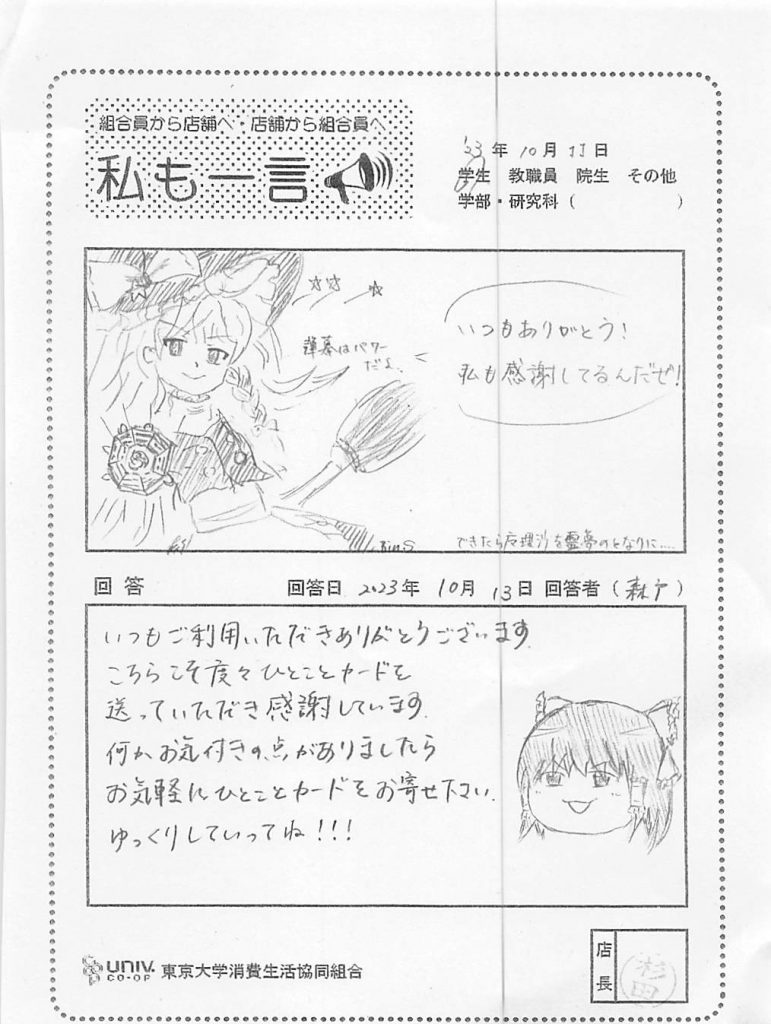 組合員から店舗へ・店舗から組合員へ
私も一言
'23年10月11日
学生 教職員 院生 その他
学部・研究科( )
いつもありがとう!
私も感謝してるんだぜ!
弾幕はパワー
だよ。
できたら魔理沙を霊夢のとなりに....
回答 回答日 2023年 10月 13日 回答者(森戸)
いつもご利用いただきありがとうございます。
こちらこそ度々ひとことカードを
送っていただき感謝しています。
何かお気付きの点がありましたら
お気軽にひとことカードをお寄せ下さい。
ゆっくりしていってね!!!
UNIV.
CO-OP
東京大学消費生活協同組合
店長
杉田